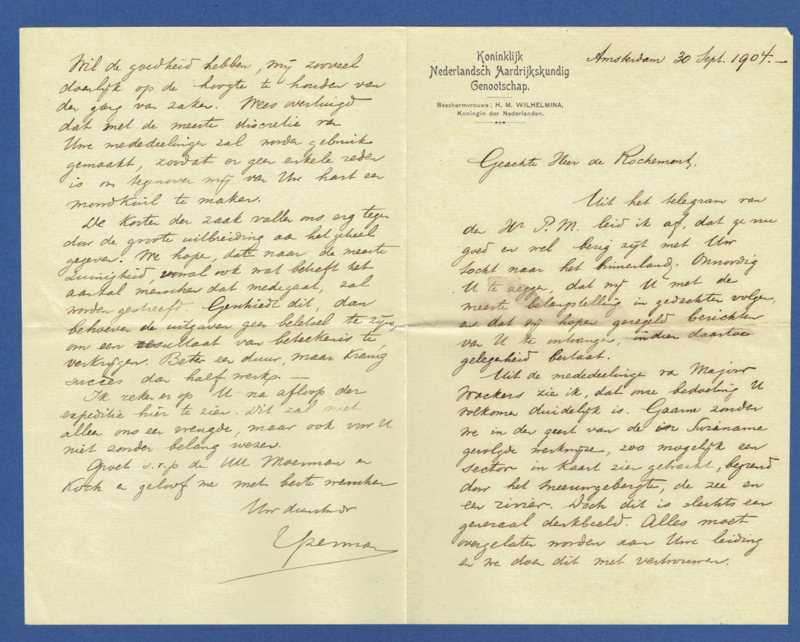 Koninklijk
Nederlandsch Aardrijkskundig
Genootschap.
Beschermvrouwe: H. M. WILHELMINA,
Koningin der Nederlanden.
Amsterdam 30 Sept. 1904.—
Geachte Heer de Rochemont,
Uit het telegram van
den Hr P.M. leid ik af, dat ge nu
goed en wel bezig zijt met Uw
tocht naar het binnenland. Onnoodig
U te zeggen, dat wij U met de
meeste belangstelling in gedachten volgen,
en dat wij hopen geregeld berichten
van U te ontvangen, indien daartoe
gelegenheid bestaat.
Uit de mededeelingen van Majoor
Wackers zie ik, dat onze bedoeling U
volkomen duidelijk is. Gaarne zouden
we in den geest van de in Suriname
gevolgde werkwijze, zoo mogelijk een
sector in kaart zien gebracht, begrensd
door het sneeuwgebergte, de zee en
een rivier. Doch dit is slechts een
generaal denkbeeld. Alles moet
overgelaten worden aan Uwe leiding
en we doen dit met vertrouwen.
Wil de goedheid hebben, mij zooveel
doenlijk op de hoogte te houden van
den gang van zaken. Wees overtuigd
dat met de meeste discretie van
Uwe mededeelingen zal worden gebruik
gemaakt, zoodat er geen enkele reden
is om tegenover mij van Uw hart een
moordkuil te maken.
De kosten der zaak vallen ons erg tegen
door de groote uitbreiding aan het geheel
gegeven. We hopen, dat naar de meeste
zuinigheid, vooral ook wat betreft het
aantal menschen dat medegaat, zal
worden gestreefd. Geschiedt dit, dan
behoeven de uitgaven geen beletsel te zijn,
om een resultaat van beteekenis te
verkrijgen. Beter een duur, maar kranig
succes dan half werk.—
Ik reken er op U na afloop der
expeditie hier te zien. Dit zal niet
alleen ons een vreugde, maar ook voor U
niet zonder belang wezen.
Groet s.v.p. de HH Moerman en
Koch en geloof me met beste wenschen
Uw dienstw dr